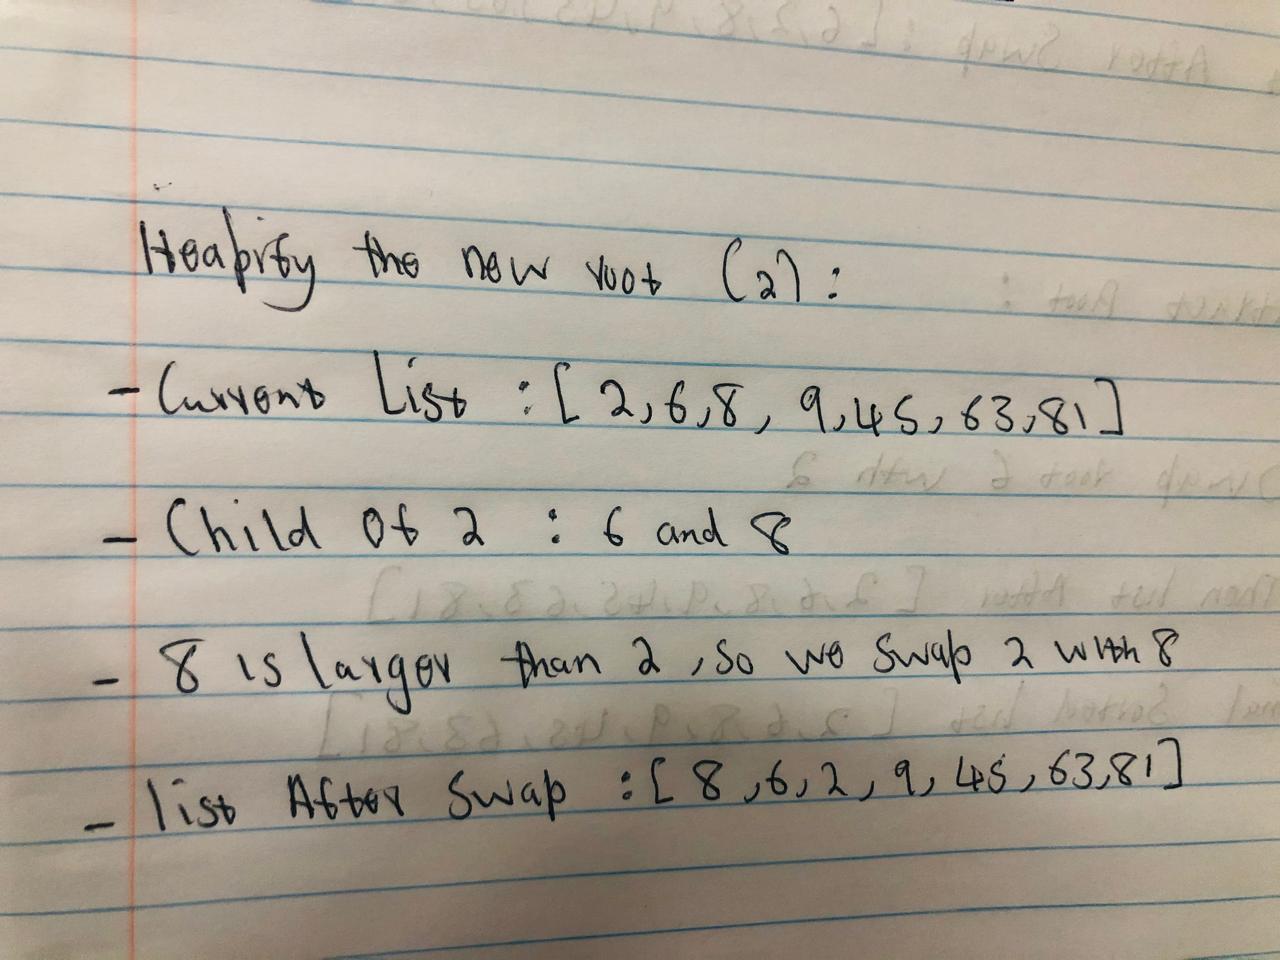 Heapify the new root (2):
- Current List : [2,6,8, 9,45, 63,81]
- Child Of 2 : 6 and 8
- 8 is larger than 2, so we swap 2 with 8
- list After swap : [8,6,2,9,45,63,81]